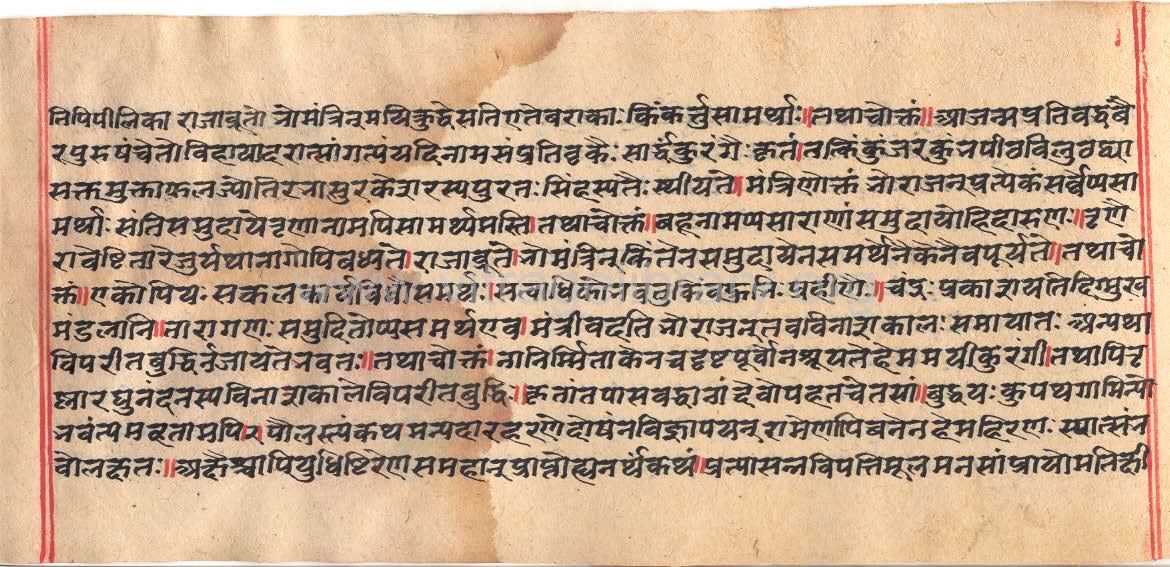 तिपिपीलिका राजाब्रूतो भोमंत्रिन्मयिक्रुद्धेसतिएतेवराकाः किंकर्त्तुसामर्थाः॥तथाचोक्तं॥आजन्मप्रतिवद्धवै
रपुरुषंचेतोविहायादरात्सांगत्यंयदिनामसंप्रतिवृकैः सार्द्धंकुरंगैः कृतं।तत्किंकुंजरकुंभपीठविलुठद्व्या
सक्तमुक्ताफलज्योतिरभासुरकेशरस्यपुरतः सिंहस्यतैः स्थीयते।मंत्रिणोक्तं भोराजन्प्रत्येकंसर्वेप्यसा
मर्थाः संतिसमुदायेतृणानामपिसामर्थ्यमस्ति।तथाचोक्तं॥बहूनामप्यसाराणां समुदायोहिदारुणः॥तृणै
रावेष्टितारेजुर्यथानागोपिबध्यते।राजाब्रूते।भोमंत्रिन् किंतेनसमुदायेनसमर्थेनैकेनैवपूर्यते॥तथाचो
क्तं॥एकोपियः सकलकार्यविधौसमर्थः।सत्वाधिकोभवतुकिंबहुभिः प्रदीपैः॥चंद्रः प्रकाशयतिदिग्मुख
मंडलानि।तारागणः समुदितोप्यसमर्थएव।मंत्रीवदति भोराजन्तवविनाशकालः समायातः अन्यथा
विपरीतबुद्धिर्नजायतेभवतः॥तथाचोक्तं।नानिर्मिताकेनचदृष्टपूर्वानश्रूयतेहेममयीकुरंगी।तथापितृ
ष्णारघुनंदनस्यविनाशकालेविपरीतबुद्धिः॥कृतांतपासबद्धानां दैवोपहतचेतसां॥बुद्धयः कुपथगामिन्यो
भवंत्यमहतामपि। पौलस्त्यंकथमन्यदारहरणेदोषंनविज्ञापयन् रामेणापिबनेनहेमहिरणः स्यात्संभ
वोलक्षतः॥अक्षैश्चापियुधिष्टिरेणसमहान्प्राप्तोह्यनर्थकथं।प्रत्यासन्नविपत्तिमूलमनसांप्रायोमतिःक्षी